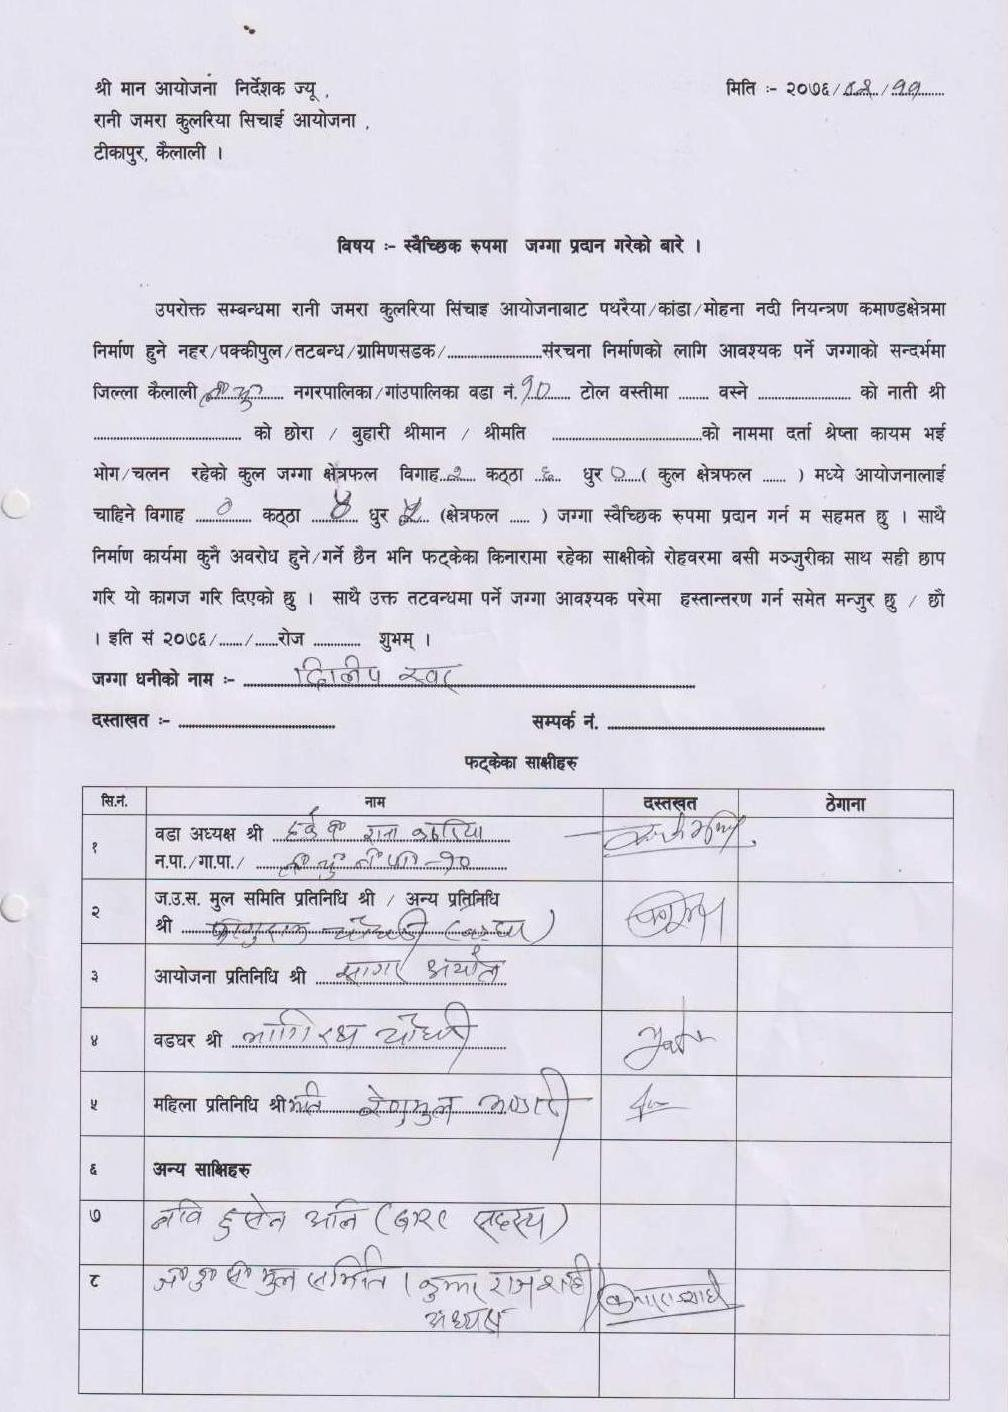 श्री मान आयोजना निर्देशक ज्यू ,
मिति :- २०७६/०२/११
रानी जमरा कुलरिया सिचाई आयोजना ,
टीकापुर, कैलाली ।
विषय :- स्वैच्छिक रुपमा जग्गा प्रदान गरेको बारे ।
उपरोक्त सम्बन्धमा रानी जमरा कुलरिया सिंचाइ आयोजनाबाट पथरैया/कांडा/मोहना नदी नियन्त्रण कमाण्डक्षेत्रमा
निर्माण हुने नहर/पक्कीपुल/तटबन्ध/ग्रामिणसडक/........................संरचना निर्माणको लागि आवश्यक पर्ने जग्गाको सन्दर्भमा
जिल्ला कैलाली नगरपालिका/गांउपालिका वडा नं.१० टोल वस्तीमा ........ वस्ने ........................ को नाती श्री
...................................... को छोरा / बुहारी श्रीमान / श्रीमति ......................................को नाममा दर्ता श्रेष्ता कायम भई
भोग/चलन रहेको कुल जग्गा क्षेत्रफल विगाह २ कठ्ठा ६ धुर ० ( कुल क्षेत्रफल ...... ) मध्ये आयोजनालाई
चाहिने विगाह ० कठ्ठा ४ धुर (क्षेत्रफल ...... ) जग्गा स्वैच्छिक रुपमा प्रदान गर्न म सहमत छु । साथै
निर्माण कार्यमा कुनै अवरोध हुने/गर्ने छैन भनि फट्केका किनारामा रहेका साक्षीको रोहवरमा बसी मञ्जुरीका साथ सही छाप
गरि यो कागज गरि दिएको छु । साथै उक्त तटवन्धमा पर्ने जग्गा आवश्यक परेमा हस्तान्तरण गर्न समेत मन्जुर छु / छौ
। इति सं २०७६/....../......रोज ............ शुभम् ।
जग्गा धनीको नाम :- दिलीप
दस्ताखत :- ........................................ सम्पर्क नं. ........................................
फट्केका साक्षीहरु
सि.नं. नाम दस्तखत ठेगाना
१ वडा अध्यक्ष श्री राना
न.पा./गा.पा./ न०पा०-१०
२ ज.उ.स. मुल समिति प्रतिनिधि श्री / अन्य प्रतिनिधि
श्री चौधरी
३ आयोजना प्रतिनिधि श्री सागर अर्याल
४ वडघर श्री भागिरथ चौधरी
५ महिला प्रतिनिधि श्रीमति
६ अन्य साक्षिहरु
७ नवि हुसेन अलि सदस्य)
८ ज० उ० स० मुल समिति (कुमार राज शाही
अध्यक्ष